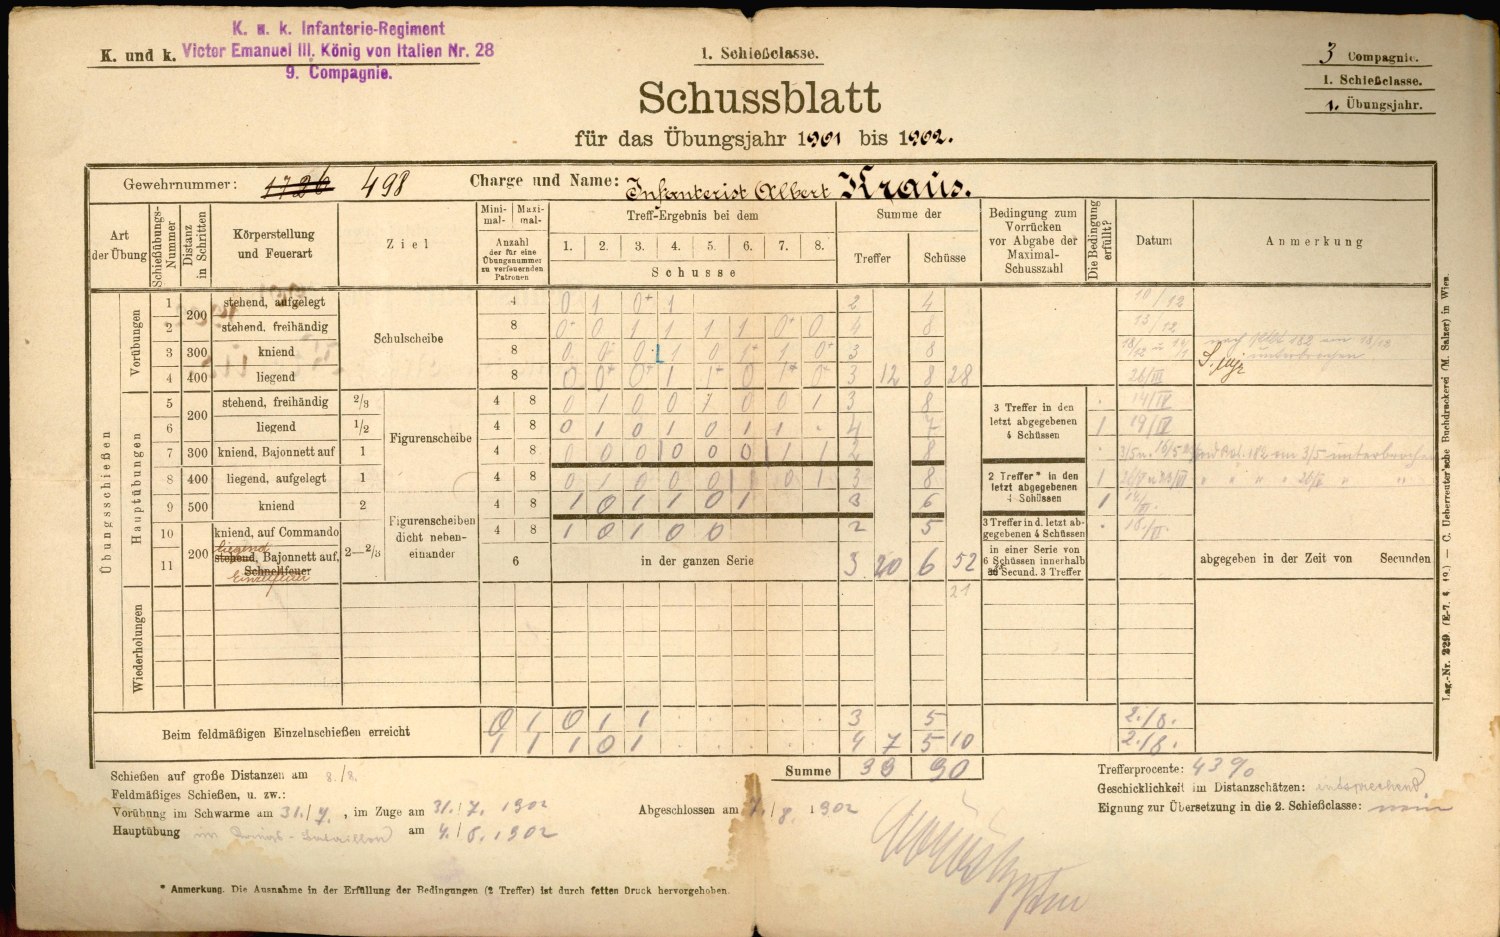 K. u. k. Infanterie-Regiment
K. und k. Victor Emanuel III, König von Italien Nr. 28
9. Compagnie.
1. Schießclasse.
3 Compagnie.
1. Schießclasse.
1. Übungsjahr.
Schussblatt
für das Übungsjahr 1901 bis 1902.
Gewehrnummer: 1726 498 Charge und Name: Infanterist Albert Kraus.
Art der Übung
Schießübungs-Nummer
Distanz in Schritten
Körperstellung und Feuerart
Ziel
Mini-mal- Maxi-mal-
Anzahl der für eine Übungsnummer zu verfeuernden Patronen
Treff-Ergebnis bei dem
1. 2. 3. 4. 5. 6. 7. 8.
Schusse
Summe der
Treffer Schüsse
Bedingung zum Vorrücken vor Abgabe der Maximal-Schusszahl
Die Bedingung erfüllt?
Datum
Anmerkung
Übungsschießen
Vorübungen
Schulscheibe
1 200 stehend, aufgelegt 4 0 1 0+ 1 2 4 10/12
2 stehend, freihändig 8 0+ 0 1 1 1 1 0+ 0 4 8 13/12
3 300 kniend 8 3 8
4 400 liegend 8 3 12 8 28 26/III
Hauptübungen
Figurenscheibe
5 200 stehend, freihändig 2/3 4 8 0 1 0 0 1 0 0 1 3 8 14/IV
6 liegend 1/2 4 8 0 1 0 1 0 1 1 . 4 7 1 19/IV
7 300 kniend, Bajonnett auf 1 4 8 0 0 0 0 0 0 1 1 2 8
3 Treffer in den letzt abgegebenen 4 Schüssen
8 400 liegend, aufgelegt 1 4 8 0 1 0 0 0 1 0 1 3 8
9 500 kniend 2 4 8 1 0 1 1 0 1 3 6 1
2 Treffer* in den letzt abgegebenen 4 Schüssen
Figurenscheiben dicht neben-einander
10 200 kniend, auf Commando 2—2/3 4 8 1 0 1 0 0 2 5
3 Treffer in d. letzt ab-gegebenen 4 Schüssen
11 liegend stehend, Bajonnett auf, Schnellfeuer Einzelfeuer 6 in der ganzen Serie 3 20 6 52
in einer Serie von 6 Schüssen innerhalb Secund. 3 Treffer
abgegeben in der Zeit von Secunden
21
Wiederholungen
Beim feldmäßigen Einzelnschießen erreicht
0 1 0 1 1 3 5 2./8.
1 1 1 0 1 4 7 5 10 2./8.
Summe 39 90
Schießen auf große Distanzen am 8./8.
Feldmäßiges Schießen, u. zw.:
Vorübung im Schwarme am 31./7., im Zuge am 31./7. 1902
Hauptübung im Kriegs-Bataillon am 4./8. 1902
Abgeschlossen am 7./8. 1902
Trefferprocente: 43%
Geschicklichkeit im Distanzschätzen: entsprechend.
Eignung zur Übersetzung in die 2. Schießclasse: nein
* Anmerkung. Die Ausnahme in der Erfüllung der Bedingungen (2 Treffer) ist durch fetten Druck hervorgehoben.
Lag.-Nr. 229. — C. Ueberreuter'sche Buchdruckerei (M. Salzer) in Wien.